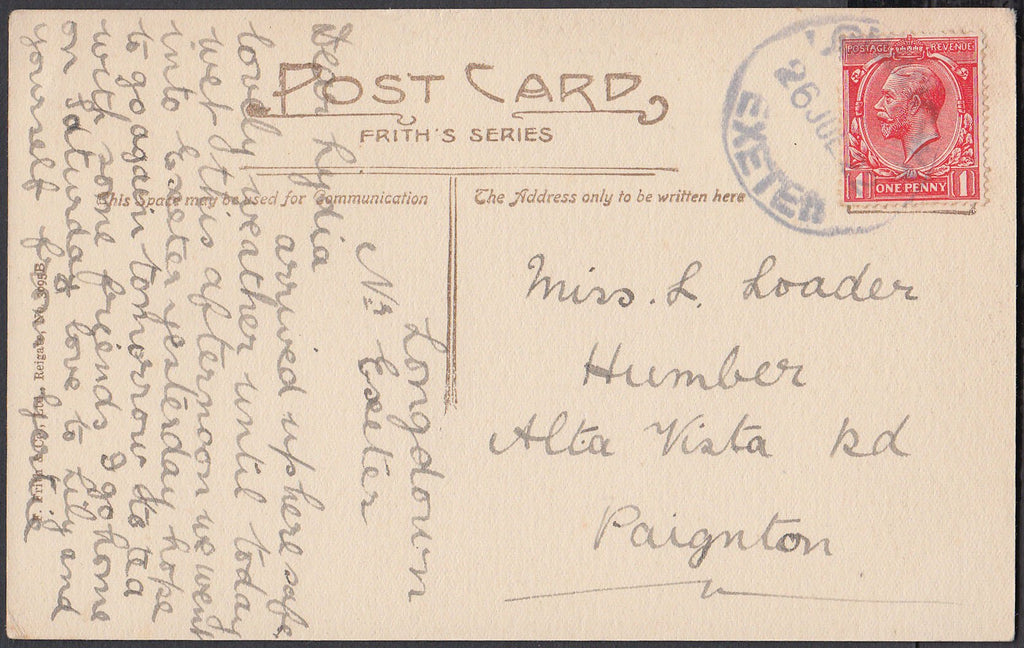 POST CARD
FRITH'S SERIES
This Space may be used for Communication
The Address only to be written here
POSTAGE REVENUE
1 ONE PENNY 1
26 JU
EXETER
Miss. L. Loader
Humber
Alta Vista Rd
Paignton
Longdown
Nr Exeter
Dear Lydia
arrived up here safe
lovely weather until today
wet this afternoon we went
into Exeter yesterday hope
to go again tomorrow to tea
with some friends I go home
on Saturday love to Lily and
yourself from
F. Frith & Co., Ltd., Reigate.